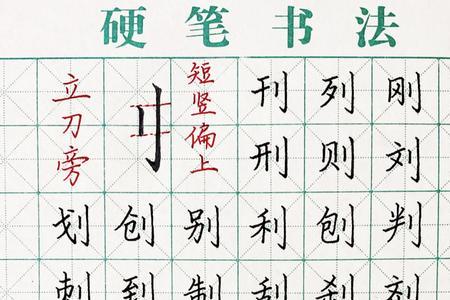 硬笔书法
立刀旁
刂
短竖偏上
刊列刚
刑则刘
划创别利刨判
刺到制刮刹